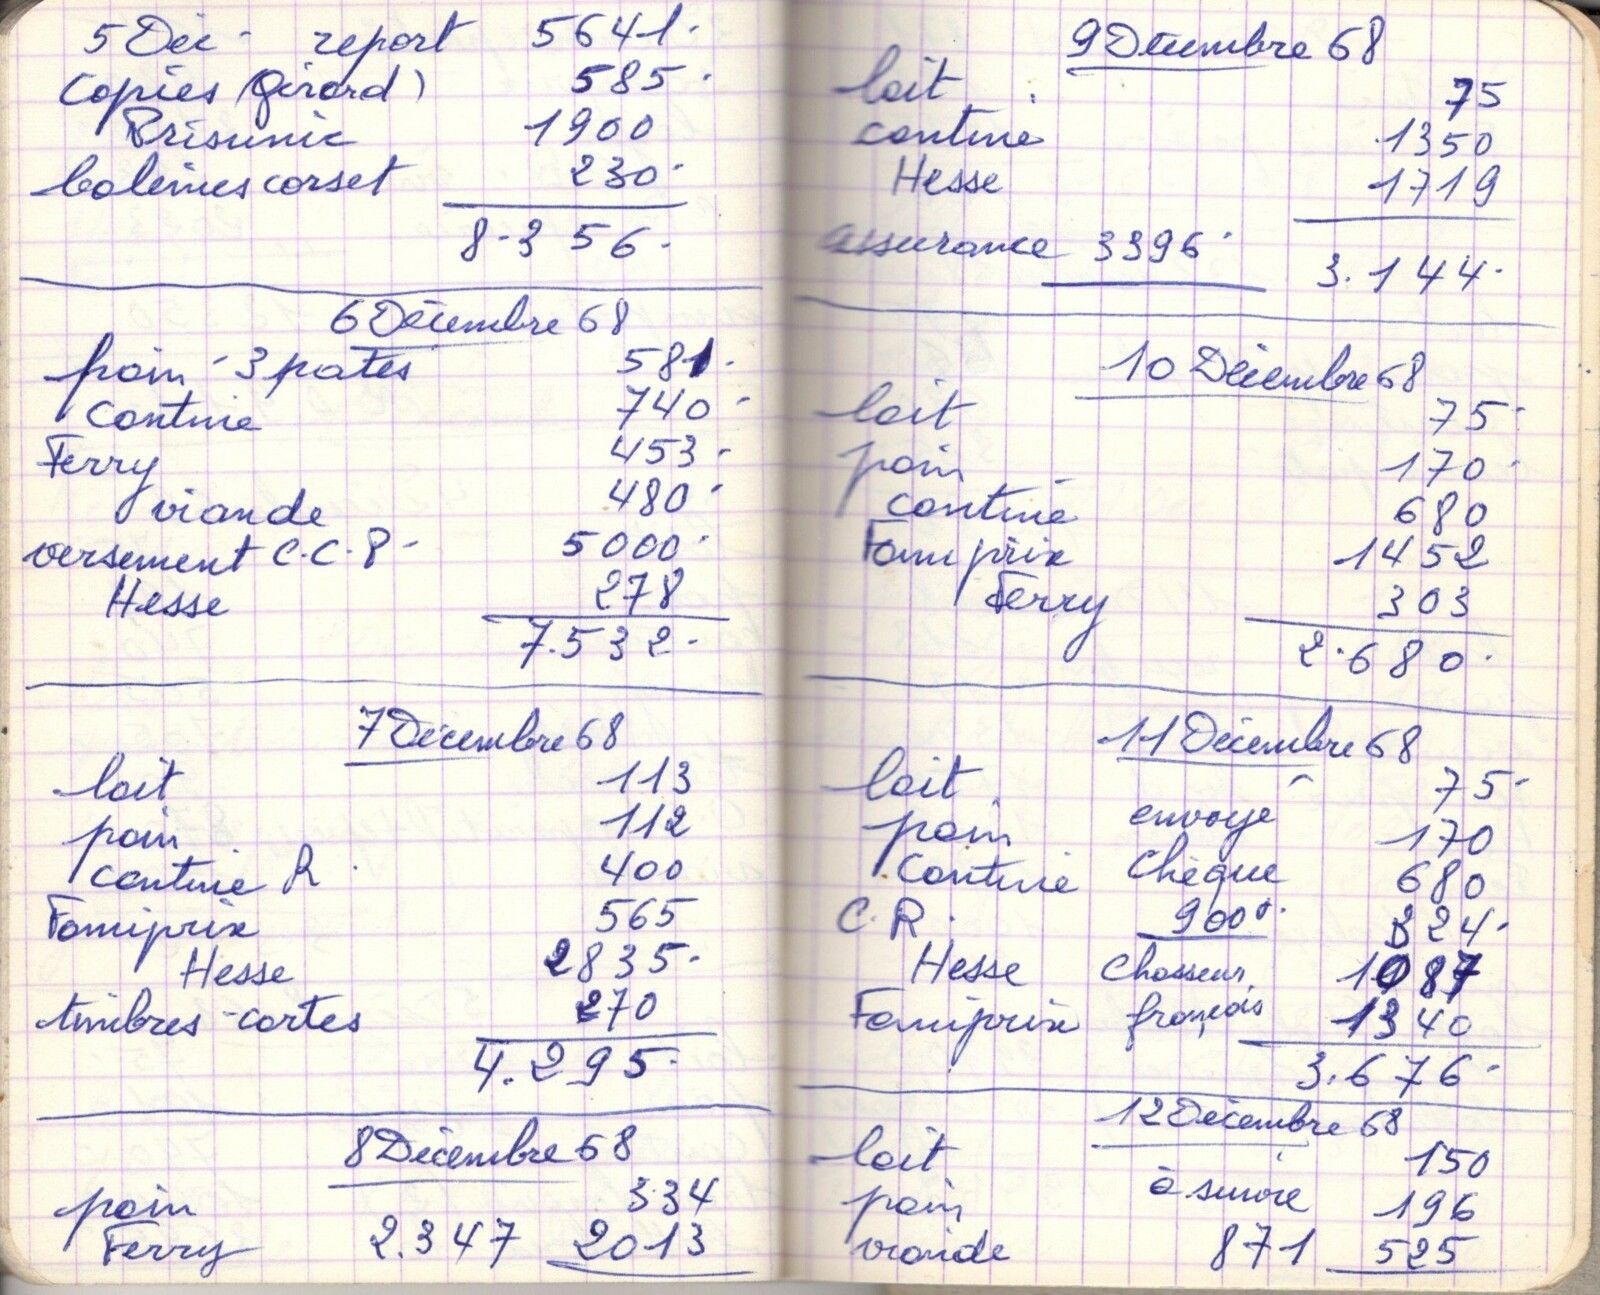 5 Déc - report 5641.
Copies (Girard) 585.
Prisunic 1900
baleines corset 230.
8.356.
6 Décembre 68
pain - 3 pates 581.
Cantine 740.
Ferry 453.
viande 480.
versement C.C.P. 5000.
Hesse 278
7.532.
7 Décembre 68
lait 113
pain 112
cantine R. 400
Famiprix 565
Hesse 2835.
timbres-cartes 270
4.295.
8 Décembre 68
pain 334
Ferry 2.347 2013
9 Décembre 68
lait 75
cantine 1350
Hesse 1719
assurance 3396. 3.144.
10 Décembre 68
lait 75.
pain 170.
cantine 680
Famiprix 1452
Ferry 303
2.680.
11 Décembre 68
lait 75.
pain envoyé 170
Cantine Chèque 680
C.R. 9000. 324.
Hesse Chasseur 1087
Famiprix français 1340
3.676.
12 Décembre 68
lait 150
pain à suivre 196
viande 871 525